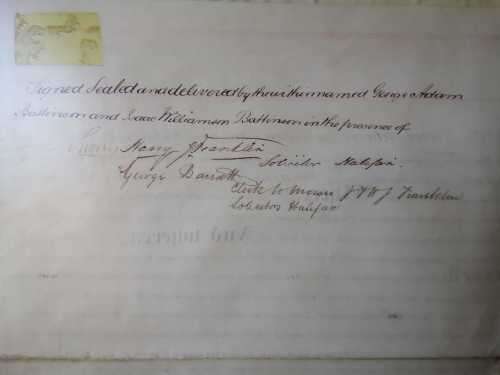 Signed Sealed and delivered by the within named George Adam
Battinson and Isaac Williamson Battinson in the presence of
Henry J Franklin
Solicitor Halifax.
George Barratt
Clerk to Messrs J & W J Franklin
Solicitors Halifax